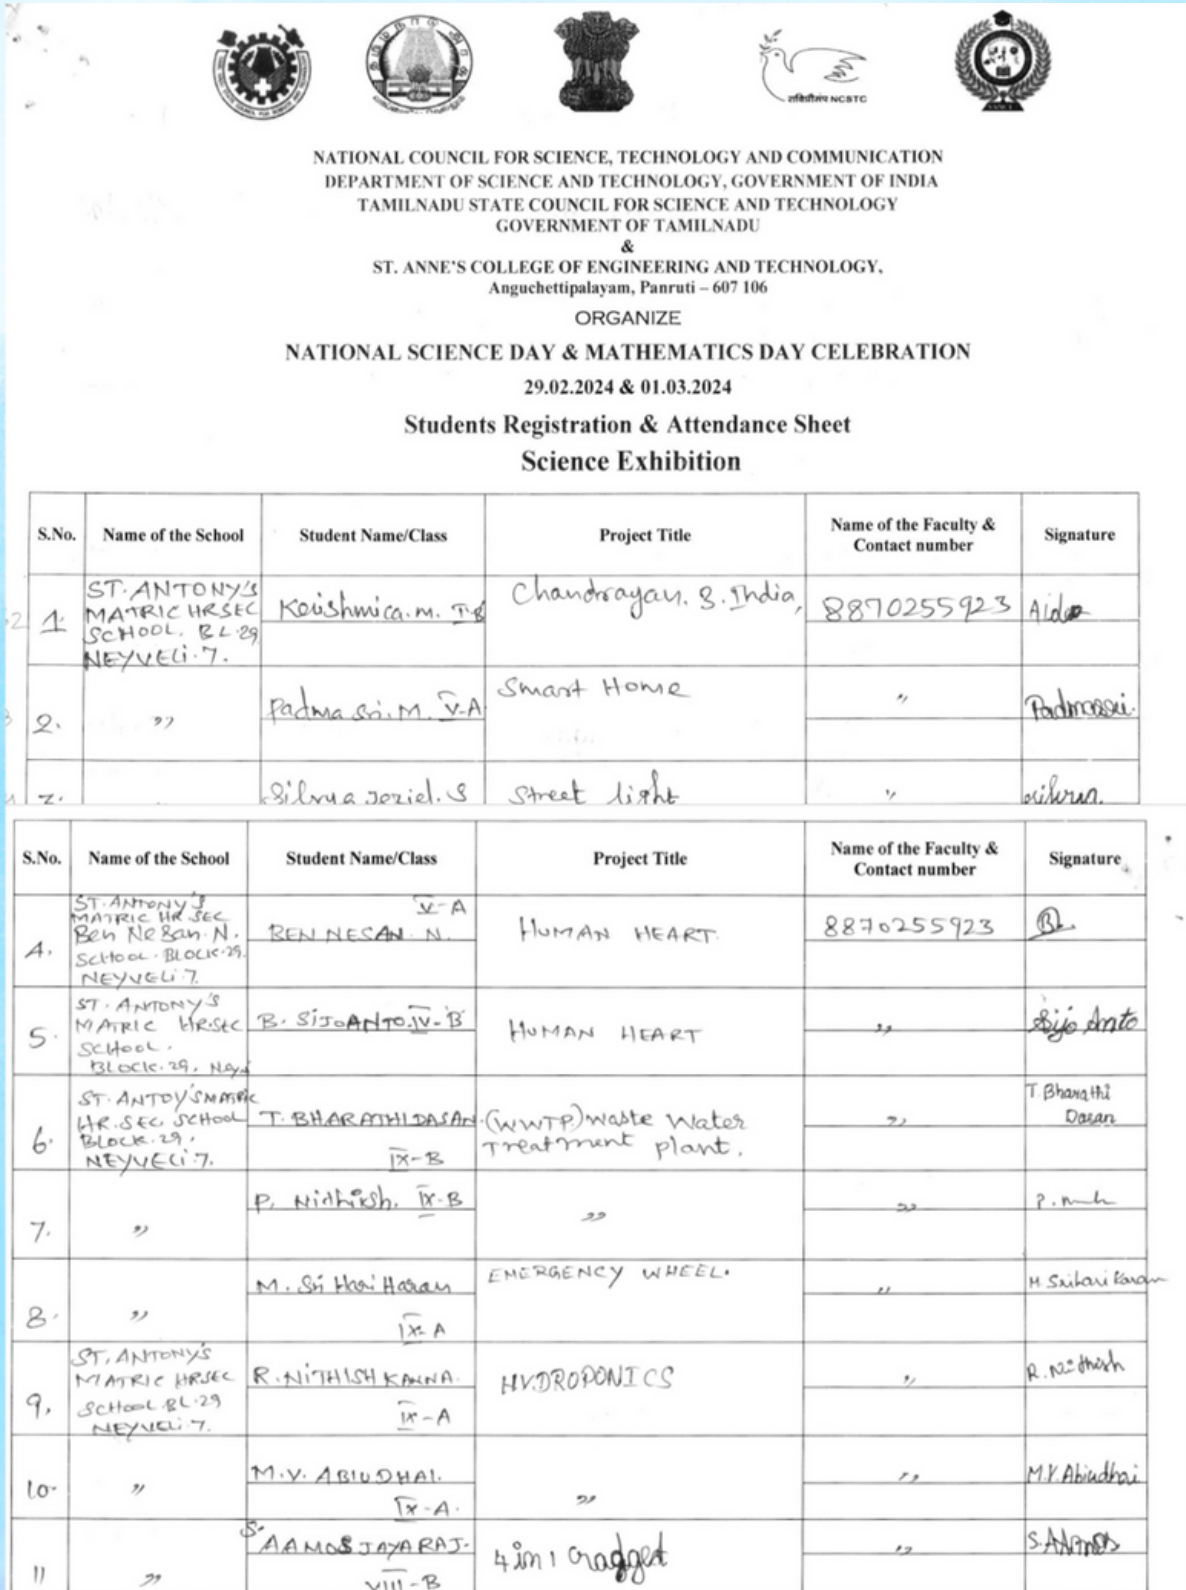 राविप्रौसंप NCSTC
NATIONAL COUNCIL FOR SCIENCE, TECHNOLOGY AND COMMUNICATION
DEPARTMENT OF SCIENCE AND TECHNOLOGY, GOVERNMENT OF INDIA
TAMILNADU STATE COUNCIL FOR SCIENCE AND TECHNOLOGY
GOVERNMENT OF TAMILNADU
&
ST. ANNE'S COLLEGE OF ENGINEERING AND TECHNOLOGY,
Anguchettipalayam, Panruti – 607 106
ORGANIZE
NATIONAL SCIENCE DAY & MATHEMATICS DAY CELEBRATION
29.02.2024 & 01.03.2024
Students Registration & Attendance Sheet
Science Exhibition
S.No. Name of the School Student Name/Class Project Title Name of the Faculty & Contact number Signature
1. ST. ANTONY'S
MATRIC HR SEC
SCHOOL. BL.29
NEYVELI.7.
Keishmica.m. Chandrayan. 3. India, 8870255923
2. " Padma Sri.M. V-A Smart Home " Padmassri.
3. Joziel. S Street light "
S.No. Name of the School Student Name/Class Project Title Name of the Faculty & Contact number Signature
4. ST. ANTONY'S
MATRIC HR.SEC
Ben Nesan. N.
SCHOOL. BLOCK.29.
NEYVELI.7.
V-A
BEN NESAN. N. HUMAN HEART. 8870255923
5. ST. ANTONY'S
MATRIC HR.SEC
SCHOOL.
BLOCK.29,
B. SIJOANTO. IV-B HUMAN HEART " Sijo Anto
6. ST. ANTOY'S MATRIC
HR.SEC SCHOOL
BLOCK.29,
NEYVELI.7.
T. BHARATHIDASAN.
IX-B
(WWTP) waste water
Treatment plant.
"
T. Bharathi
Dasan
7. " P. Nidhish. IX-B " "
8. " M. Sri Hari Haran
IX-A
EMERGENCY WHEEL. "
9. ST. ANTONY'S
MATRIC HRSEC
SCHOOL BL.29
NEYVELI.7.
R. NITHISH KANNA.
IX-A
HYDROPONICS " R. Nithish
10. " M.V. ABIUDHAI.
IX-A.
" " M.V. Abiudhai
11 " S. AAMOS JAYARAJ.
VIII-B
4 in 1 Gragget " S. AAmos